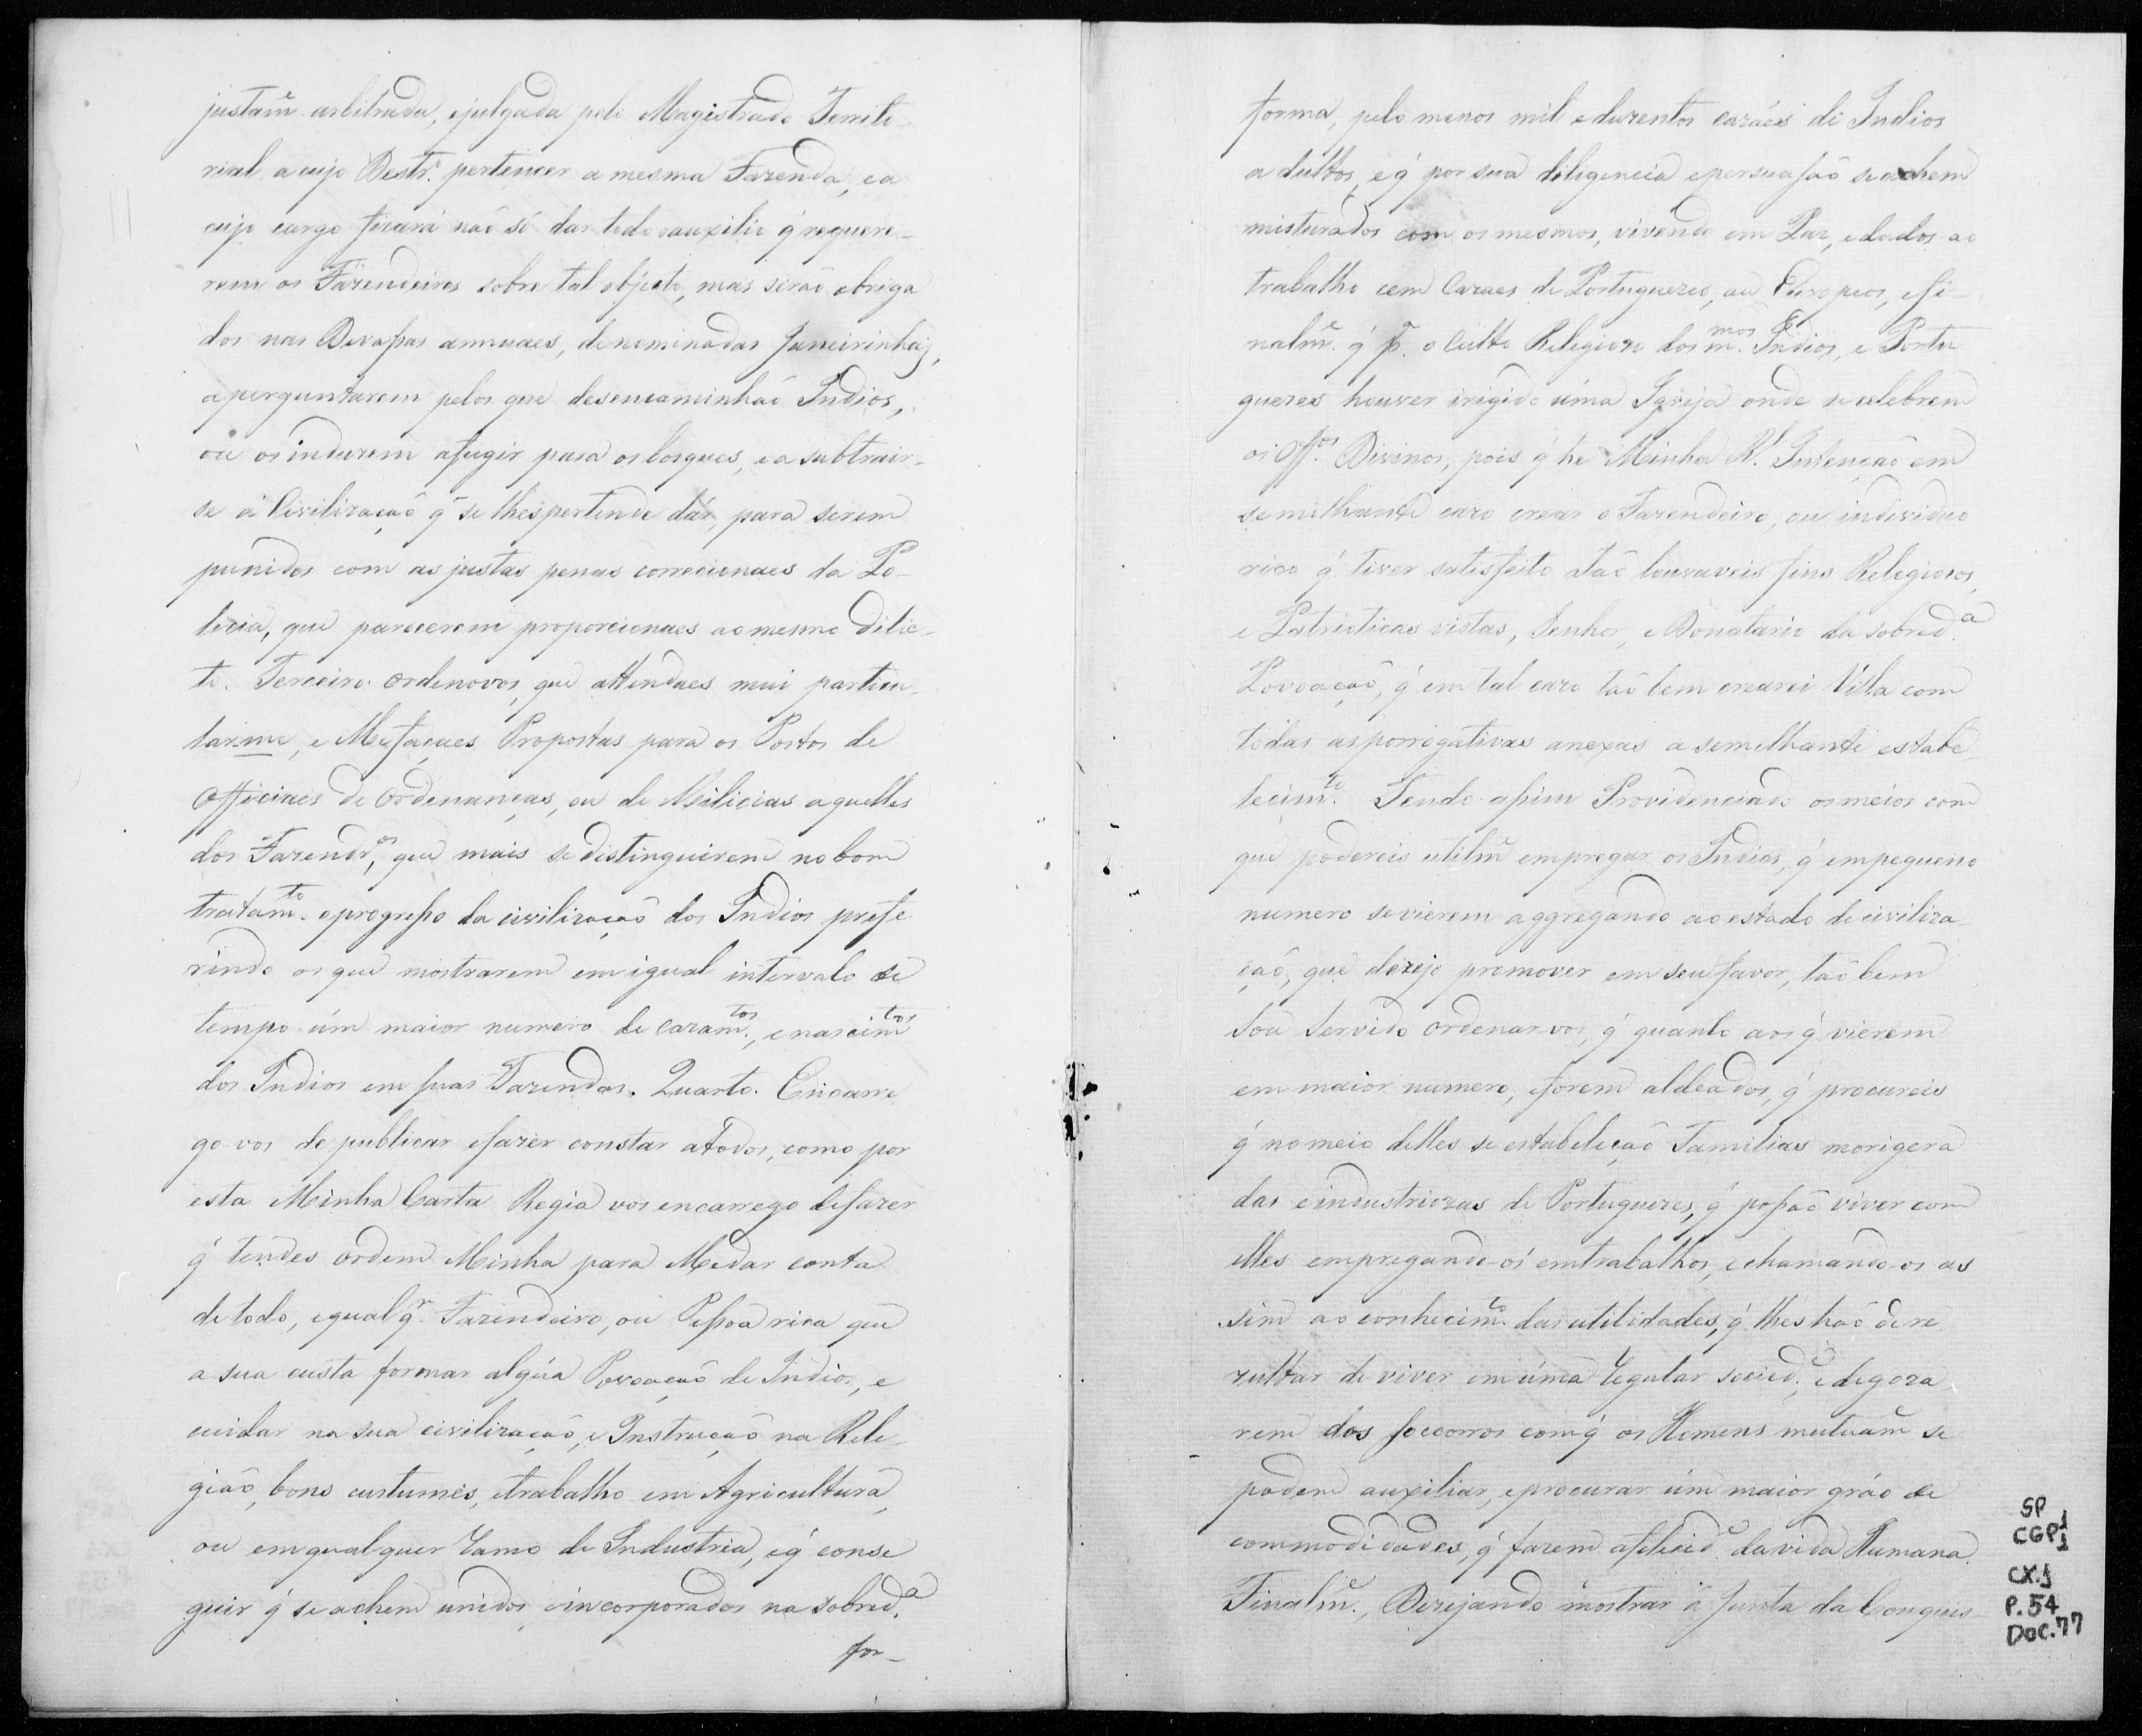 justam̃. arbitrada, ejulgada pelo Magistrado Territo-
rial acujo Destr.º pertencer a mesma Fazenda, ea
cujo cargo ficará naõ só dar todo oauxilio q̃ requere-
rem os Fazendeiros sobre tal objecto, mas seraõ obriga
dos nas Devaſsas annuaes, denominadas Janeirinhas,
aperguntarem pelos que desencaminhaõ Indios,
ou osinduzem afugir para osbosques, ea subtrair-
se á Civilizaçaõ q̃ se lhespertende dár, para serem
punidos com as justas penas correcionaes da Po-
licia, que parecerem proporcionaes ao mesmo Delic-
to. Terceiro. Ordenovos, que attendaes mui particu-
larme, e Mefaçaes Propostas para os Postos de
Officiaes de Ordenanças, ou de Milicias aquelles
dos Fazendr.os, que mais sedistinguirem nobom
tratam.to eprogreſso da civilizaçaõ dos Indios prefe
rindo os que mostrarem em igual intervalo de
tempo úm maior numero de cazam.tos, enascim.tos
dos Indios em suas Fazendas. Quarto. Encarre
go-vos de publicar efazer constar aTodos, como por
esta Minha Carta Regia vos encarrego defazer
q̃ tendes ordem Minha para Medar conta
detodo, equalq̃.r Fazendeiro, ou Peſsoa rica que
a sua custa formar algúa Povoaçaõ de Indios, e
cuidar na sua civilizaçaõ, e Instruçaõ na Rele-
giaõ, bons custumes, etrabalho em Agricultura,
ou emqualquer Ramo de Industria, eq̃ conse
guir q̃ se achem unidos, eincorporados na sobred.a
for-
forma, pelo menos mil eduzentos cazáes de Indios
adultos, eq̃ por sua diligencia epersuasaõ seachem
misturados com os mesmos, vivendo em Paz, edados ao
trabalho cem Cazaes de Portuguezes, ou Europeos, efi-
nalm̃.e q̃ p.ª o Culto Relegiozo dos m.mos Indios, e Portu
guezes houver irigido úma Igreja onde secelebrem
os Off.os Divinos, pois q̃ he Minha R.l Intençaõ em
semilhante cazo crear o Fazendeiro, ou individuo
rico q̃ tiver satisfeito taõ louvaveis fins Relegiozos,
e Patrioticas vistas, Senhor, e Donatario da sobred.a
Povoaçaõ, q̃ em tal cazo taõ bem crearei Villa com
todas asporrogativas anexas a semelhante estabe
lecim.to. Tendo aſsim Providenciado os meios com
que podereis utilm̃.e empregar os Indios, q̃ empequeno
numero sevierem aggregando ao estado deciviliza
çaõ, que dezejo promover em seu favor, taõ bem
Sou Servido Ordenar-vos, q̃ quanto aos q̃ vierem
em maior numero, eforem aldeados, q̃ procureis
q̃ nomeio delles se estabeleçaõ Familias morigera
das eindustriozas de Portuguezes, q̃ poſsaõ viver com
elles empregando-os emtrabalhos, echamando-os as
sim ao conhecim.to das utilidades, q̃ lhes haõ de re
zultar de viver em úma Regular socied.e, edegoza
rem dos soccorros comq̃ os Homens mutuam̃.e se
podem auxiliar, eprocurar úm maior gráo de
commodidades, q̃ fazem afelicid.e davida Humana.
Finalm̃.e, Dezejando mostrar á Junta da Conquis-
SP
CGP1
1
CX.1
P.54
DOC.77